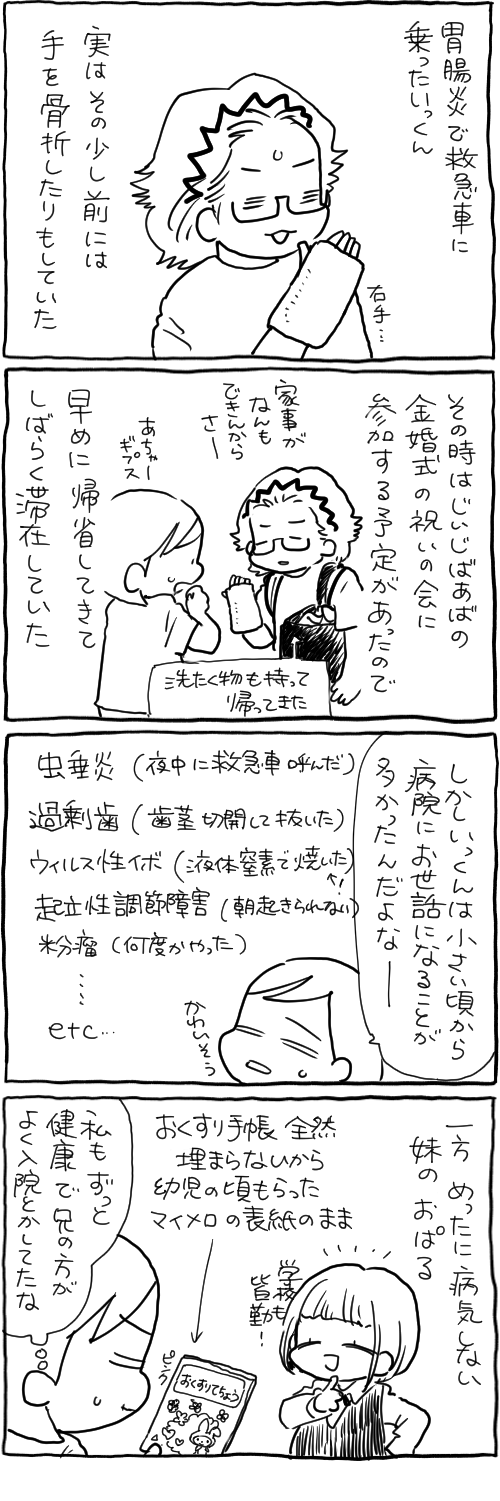 胃腸炎で救急車に
乗ったいっくん
右手…
実はその少し前には
手を骨折したりもしていた
その時はじぃじばぁばの
金婚式の祝いの会に
参加する予定があったので
家事が
なんも
できんから
さー
あちゃー
ギプス
早めに帰省してきて
しばらく滞在していた
洗たく物も持って
帰ってきた
しかしいっくんは小さい頃から
病院にお世話になることが
多かったんだよなー
虫垂炎(夜中に救急車呼んだ)
過剰歯(歯茎切開して抜いた)
ウィルス性イボ(液体窒素で焼いた)
!
起立性調節障害(朝起きられない)
粉瘤(何度かやった)
……
etc…
かわいそう
一方めったに病気しない
妹のおぱる
おくすり手帳全然
埋まらないから
幼児の頃もらった
マイメロの表紙のまま
学校も
皆勤!
ピンク
おくすりてちょう
私もずっと
健康で兄の方が
よく入院とかしてたな